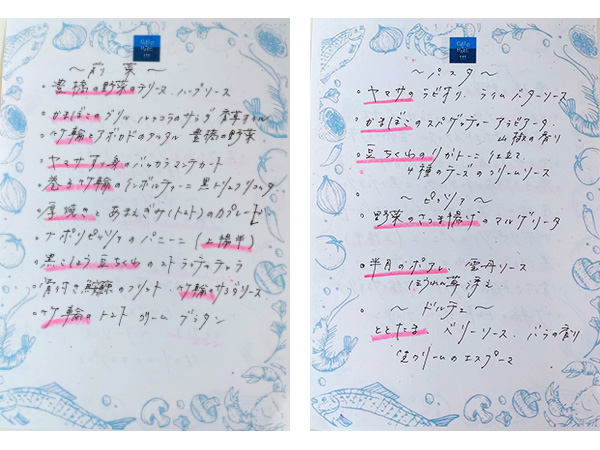 〜前菜〜
・豊橋の野菜のテリーヌ ハーブソース
・かまぼこのグリル ルッコラのサラダ 香草オイル
・竹輪とアボカドのタルタル 豊橋の野菜
・ヤマサすり身のバルカラマンテカート
・巻き竹輪のインボルティーニ 黒トリュフリコッタ
・厚焼きとあまえびサ(トマト)のカプレーゼ
・ナポリピッツァのパニーニ (上陽半)
・黒こしょう豆ちくわのストラッチャテッラ
・骨付きのフリット 竹輪のサラダソース
・竹輪のトマトクリーム グラタン
〜パスタ〜
・ヤマサのラビオリ. ライムバターソース
・かまぼこのスパゲッティーアラビアータ.
山椒の香り
・豆ちくわのリガトーニ仕立て
4種のチーズのクリームソース
〜ピッツァ〜
・野菜のさつま揚げのマルゲリータ
・半月のポアレ 雲丹ソース
ほうれん草添え
・〜ドルチェ〜
ととたま ベリーソース. バラの香り
生クリームのエスプーマ